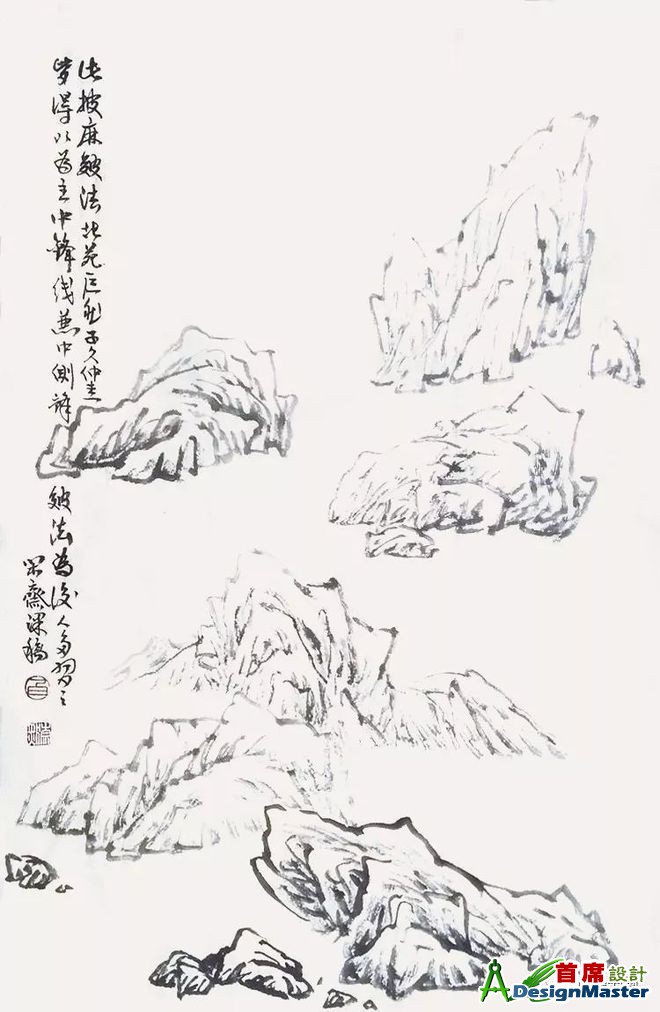 此披麻皴法北苑巨然子久仲圭
得以为主中锋线兼中侧锋
皴法為後人多習之
齋课稿
首席設計
ADesignMaster